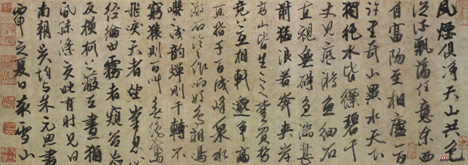 風煙俱淨天山共色
從流飄蕩任意東西
自富陽至桐廬一百
許里奇山異水天下
獨絶水皆縹碧千
丈見底游魚細石
直視無礙急湍甚
箭猛浪若奔夾岸
高山皆生寒樹負勢
競上互相軒邈爭高
直指千百成峰泉水
激石泠泠作響好鳥相鳴
嚶嚶成韻蟬則千轉不
窮猿則百叫無絶鳶
飛戾天者望峰息心
經綸世務者窺谷忘
反横柯上蔽在晝猶
昏疏條交映有時見日
南朝吳均與朱元思書
之夏日東雪山